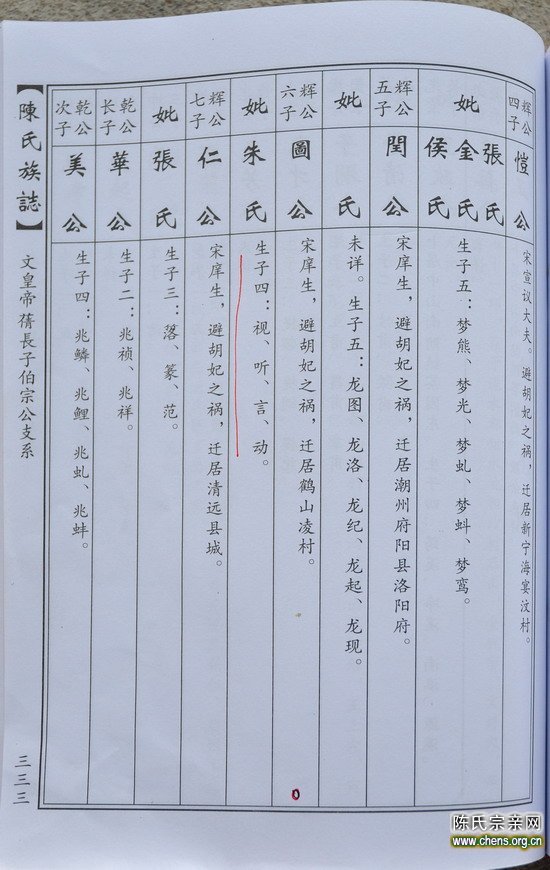 辉公四子 愷公 宋宣议大夫。避胡妃之祸，迁居新宁海宴汶村。
妣 張氏 金氏 侯氏 生子五：梦熊、梦光、梦虬、梦蚪、梦鸾。
辉公五子 閏公 宋庠生，避胡妃之祸，迁居潮州府阳县洛阳府。
妣 氏 未详。生子五：龙图、龙洛、龙纪、龙起、龙现。
辉公六子 圖公 宋庠生，避胡妃之祸，迁居鹤山凌村。
妣 朱氏 生子四：视、听、言、动。
辉公七子 仁公 宋庠生，避胡妃之祸，迁居清远县城。
妣 張氏 生子三：落、篆、范。
乾公长子 華公 生子二：兆祯、兆祥。
乾公次子 美公 生子四：兆鳞、兆鲤、兆虬、兆蚌。
【陳氏族誌】 文皇帝蒨長子伯宗公支系
三三三
陈氏宗亲网
www.chens.org.cn